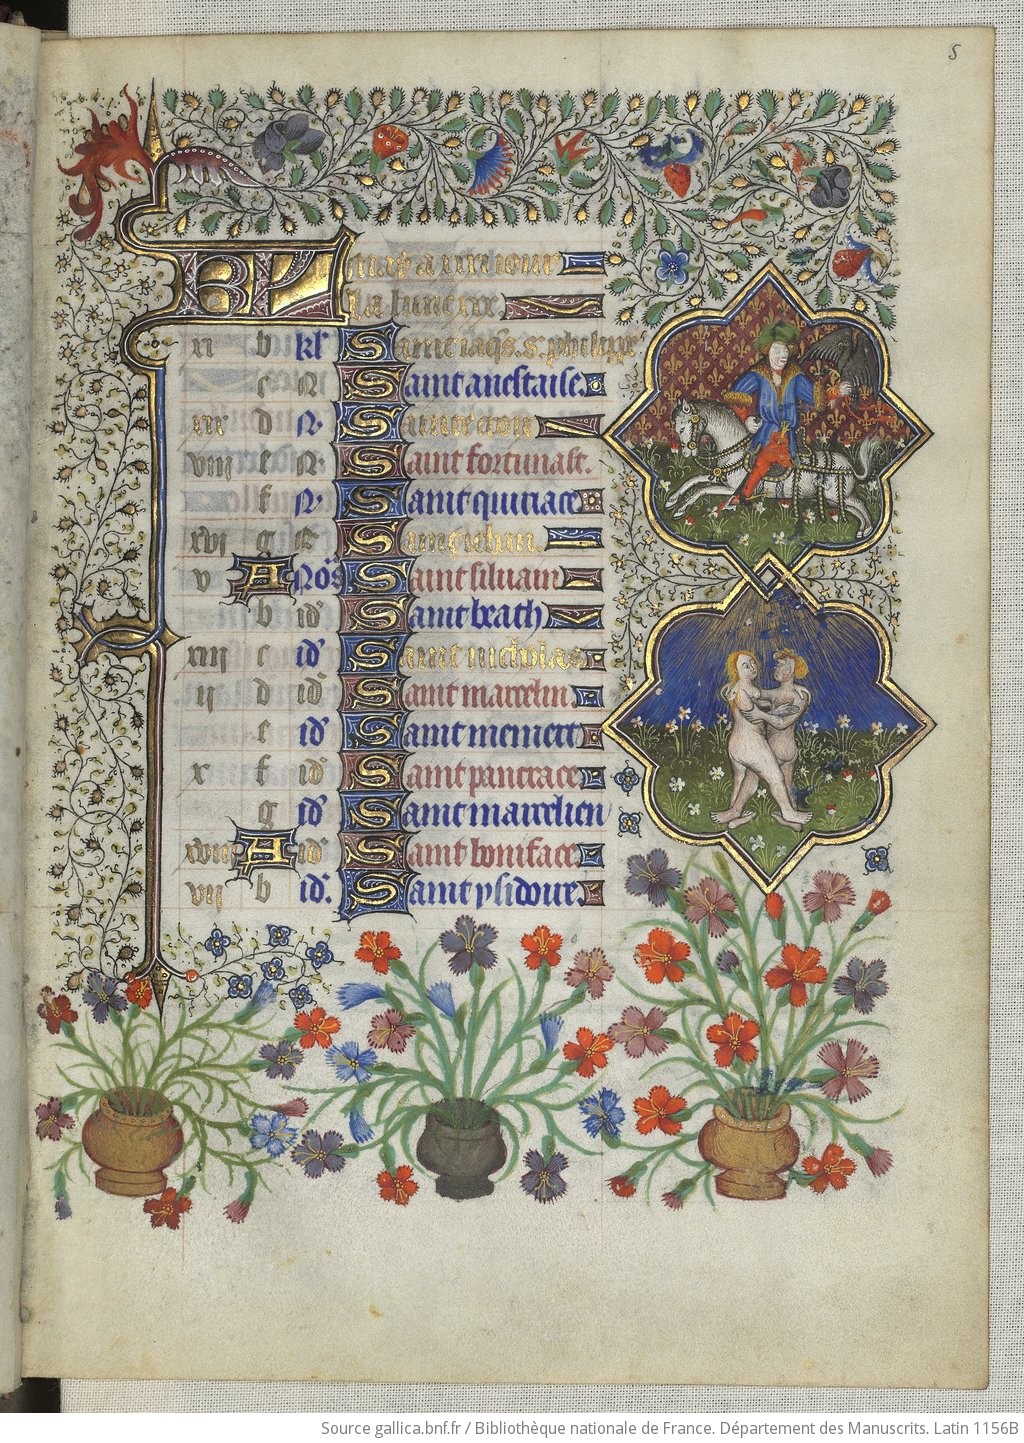 5
KL May a xxxi iour
La lune xxx.
xi b kl Saint iaq̃s. s. phelippe
c N Saint anestaise.
xix d N. Sainte croix
viii e N. Saint fortunast.
f N. Saint quiriace
xvi g N Saint iehan.
v A Noś Saint siluain
b id Saint beath
xiii c id Saint nicholas
ii d id Saint marcelin.
e id Saint memert
x f id Saint pancrace
g id Saint marcelien
xviii A id Saint boniface.
vii b id. Saint ysidoire.
Source gallica.bnf.fr / Bibliothèque nationale de France. Département des Manuscrits. Latin 1156B